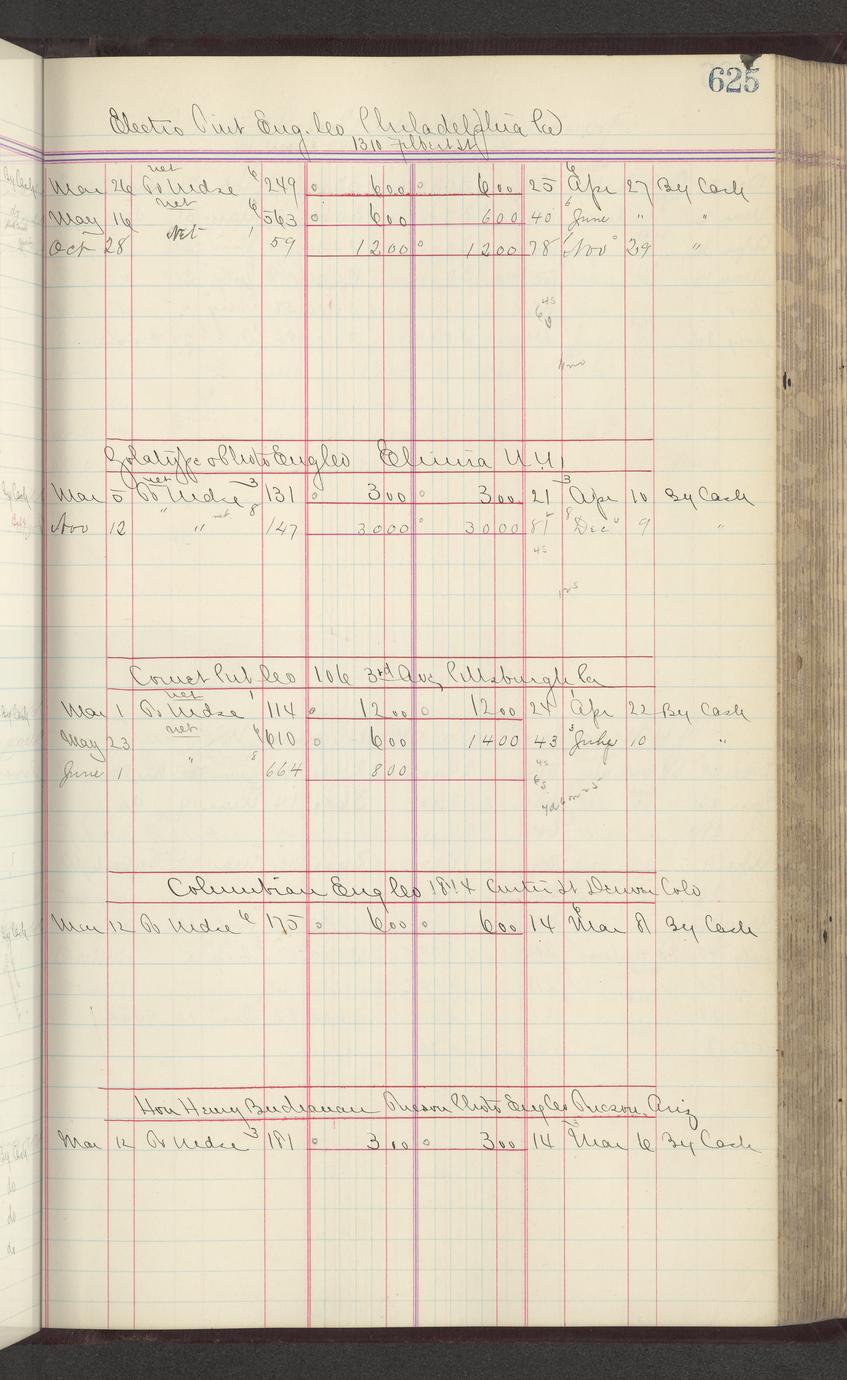 625
Electro Tint Eng. Co Philadelphia Pa
1310 Filbert St
net 6 6
Mar 26 To Mdse 249 0 600 0 600 25 Apr 27 By Cash
net 6 6
May 16 563 0 600 600 40 June " "
Oct 28 Net 1 59 1200 0 1200 78 Nov 29 "
45
Photo Eng Co Elmira N.Y.
net 3 3
Mar 5 To Mdse 131 0 300 0 300 21 Apr 10 By Cash
Nov 12 " " net 8 147 3000 0 3000 81 8 Dec 9 "
45
Comet Pub Co 106 3rd Ave, Pittsburgh Pa
net 1 1
Mar 1 To Mdse 114 0 1200 0 1200 24 Apr 22 By Cash
net
May 23 6 610 0 600 1400 43 3 July 10 "
June 1 " 8 664 800
45
Columbian Eng Co Curtis St Denver Colo
Mar 12 To Mdse 6 175 0 600 0 600 14 Mar 8 By Cash
Hon Henry Buchanan Tucson Photo Eng Co Tucson, Ariz
Mar 12 To Mdse 3 181 0 300 0 300 14 3 Mar 6 By Cash